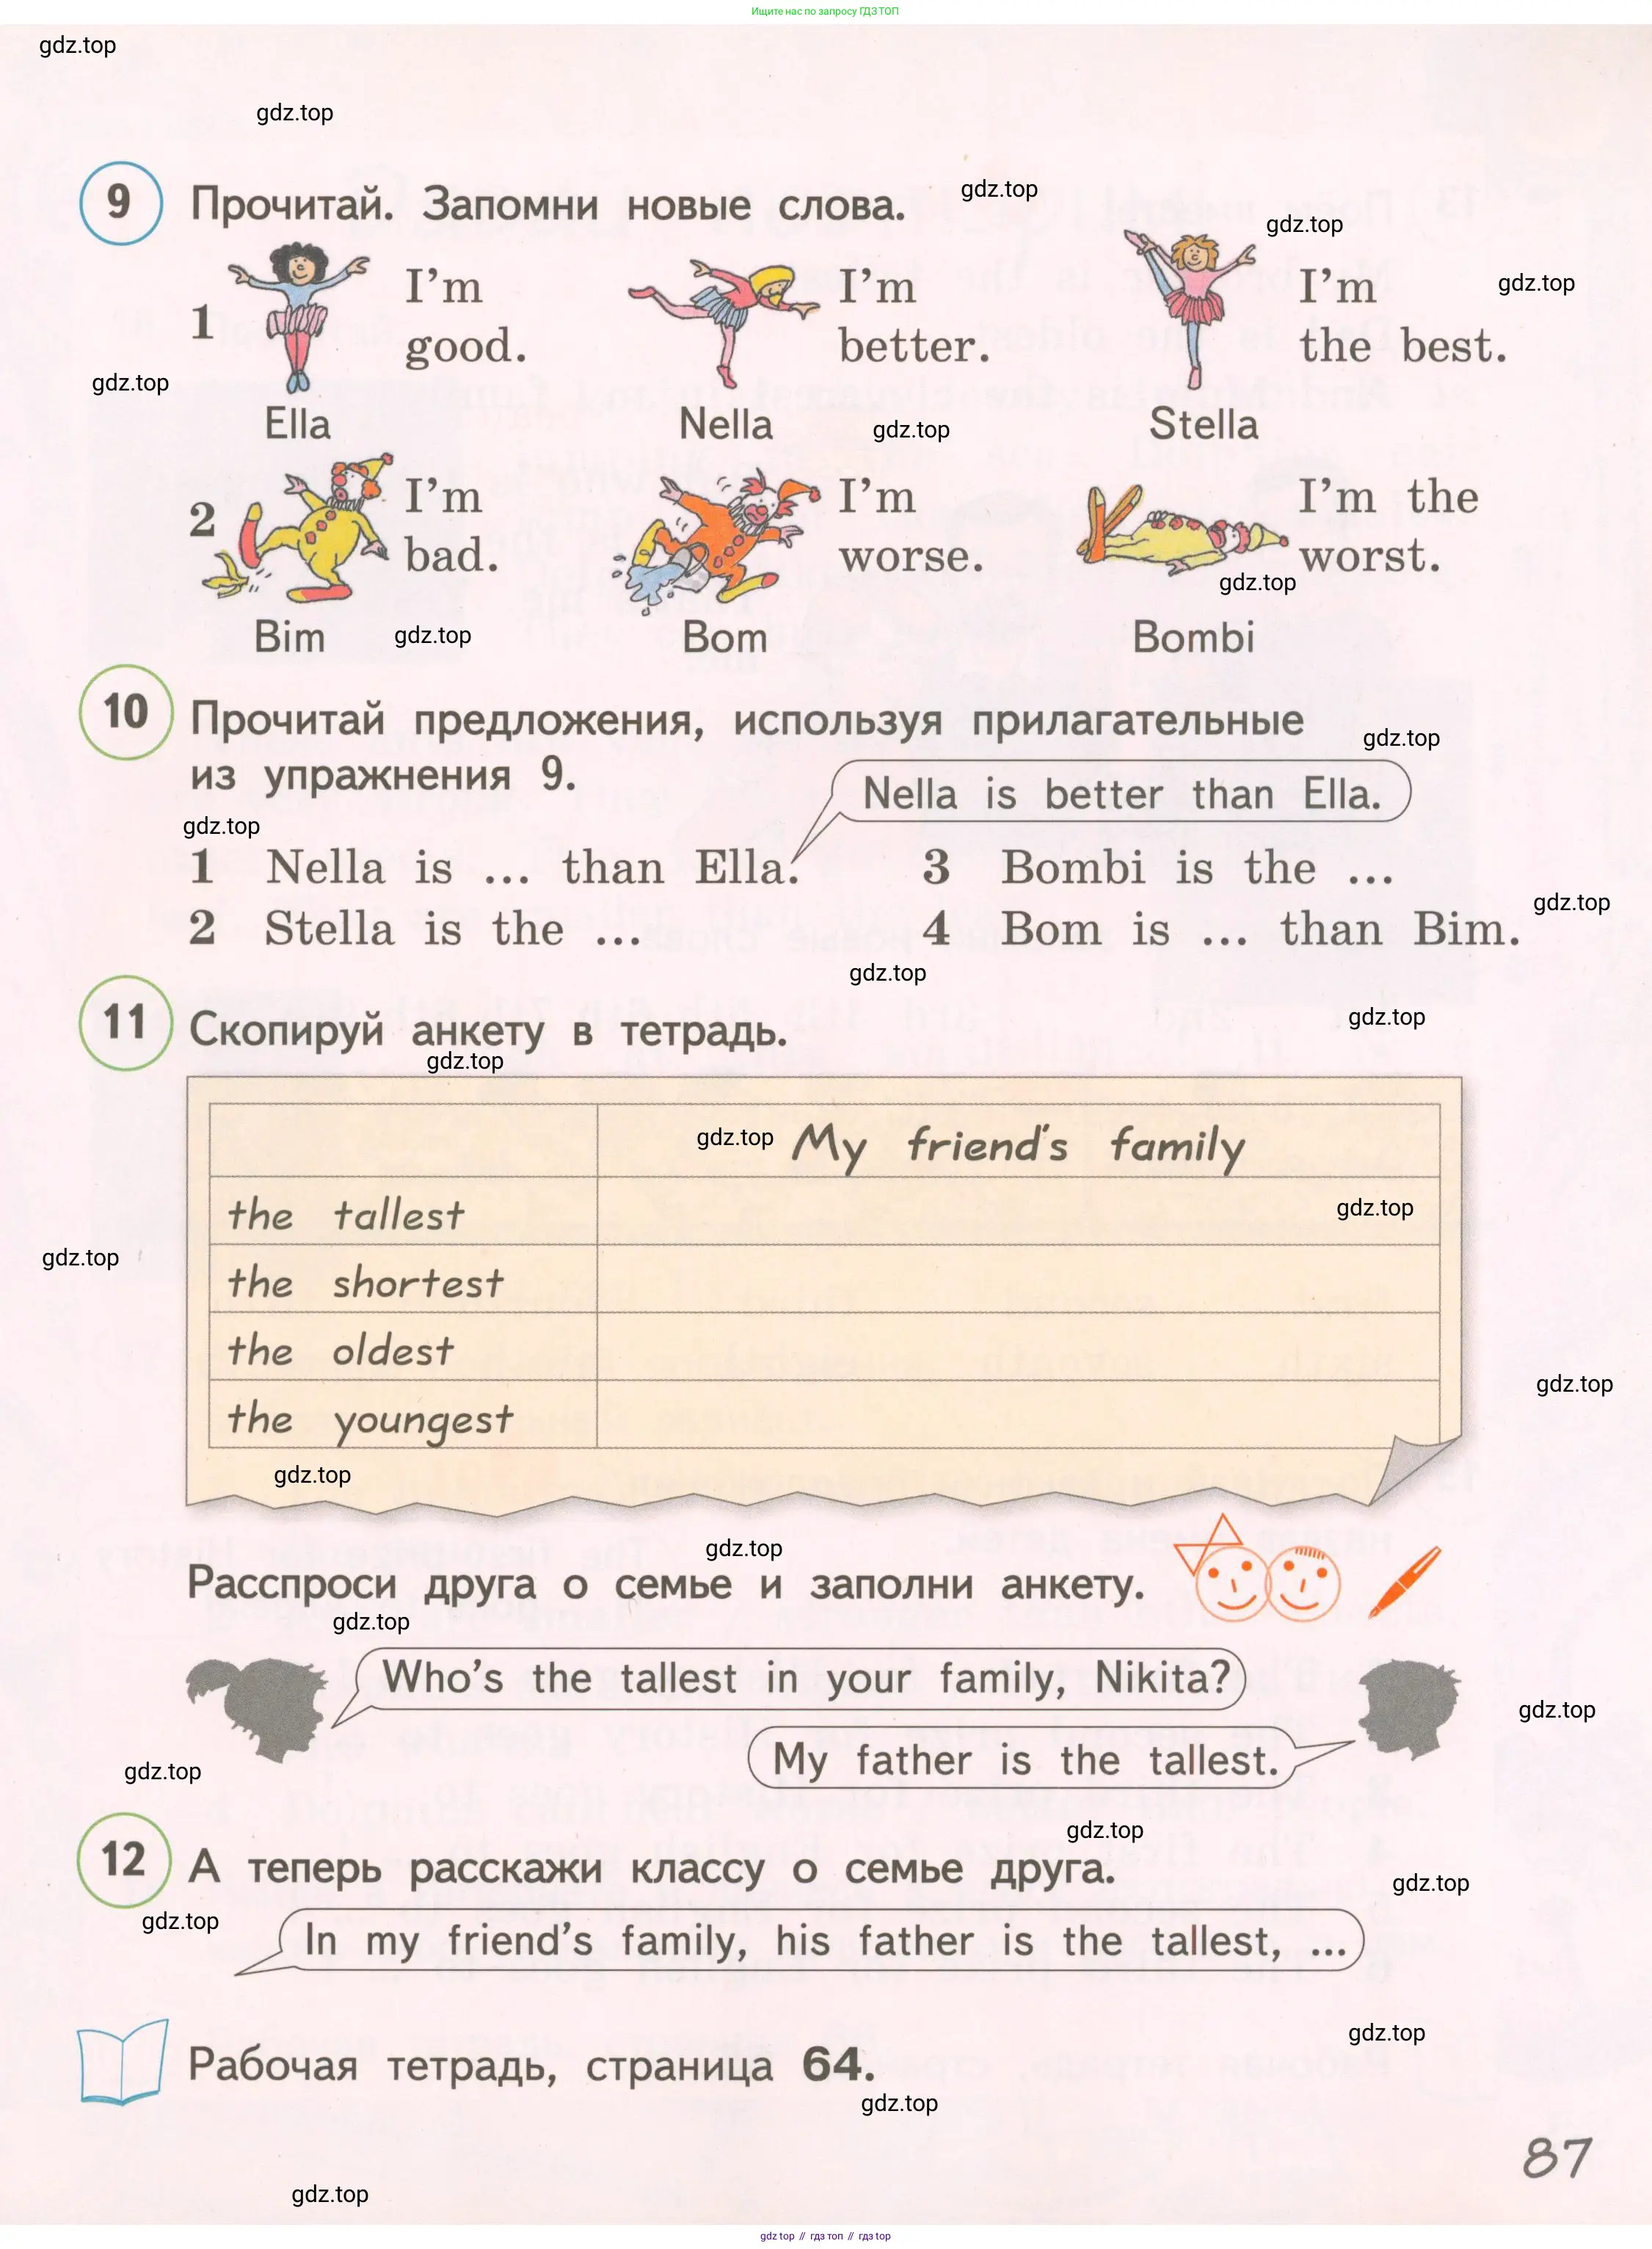 Ищите нас по запросу ГДЗ ТОП
gdz.top
gdz.top
9 Прочитай. Запомни новые слова.
gdz.top
gdz.top
gdz.top
1 I'm good.
I'm better.
I'm the best.
gdz.top
Ella Nella Stella
gdz.top
2 I'm bad.
I'm worse.
I'm the worst.
gdz.top
Bim Bom Bombi
gdz.top
10 Прочитай предложения, используя прилагательные
gdz.top
из упражнения 9.
Nella is better than Ella.
gdz.top
1 Nella is ... than Ella.
3 Bombi is the ...
gdz.top
2 Stella is the ...
4 Bom is ... than Bim.
gdz.top
gdz.top
11 Скопируй анкету в тетрадь.
gdz.top
gdz.top My friend's family
the tallest
gdz.top
gdz.top
the shortest
the oldest
gdz.top
the youngest
gdz.top
gdz.top
Расспроси друга о семье и заполни анкету.
gdz.top
Who's the tallest in your family, Nikita?
gdz.top
My father is the tallest.
gdz.top
gdz.top
12 А теперь расскажи классу о семье друга.
gdz.top
gdz.top
In my friend's family, his father is the tallest, ...
gdz.top
Рабочая тетрадь, страница 64.
gdz.top
87
gdz.top
gdz top // гдз топ // гдз top